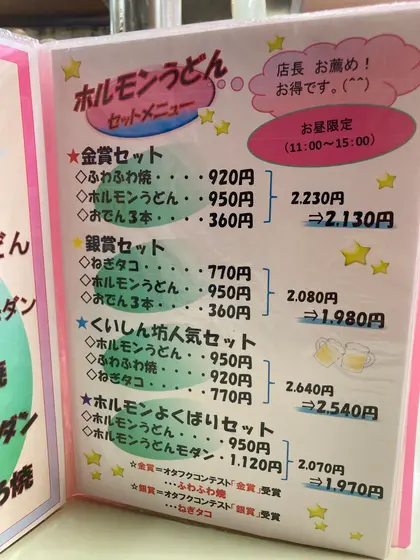 ホルモンうどん
セットメニュー
店長 お薦め!
お得です。(^^)
お昼限定
(11:00~15:00)
★金賞セット
◇ふわふわ焼・・・・920円
◇ホルモンうどん・・950円
◇おでん3本・・・・360円
2.230円
⇒2.130円
★銀賞セット
◇ねぎタコ・・・・・770円
◇ホルモンうどん・・950円
◇おでん3本・・・・360円
2.080円
⇒1.980円
★くいしん坊人気セット
◇ホルモンうどん・・950円
◇ふわふわ焼・・・・920円
◇ねぎタコ・・・・・770円
2.640円
⇒2.540円
★ホルモンよくばりセット
◇ホルモンうどん・・・・950円
◇ホルモンうどんモダン・1.120円
2.070円
⇒1.970円
☆金賞=オタフクコンテスト「金賞」受賞
・・・ふわふわ焼
☆銀賞=オタフクコンテスト「銀賞」受賞
・・・ねぎタコ
どん
ダン
焼
ダン
焼